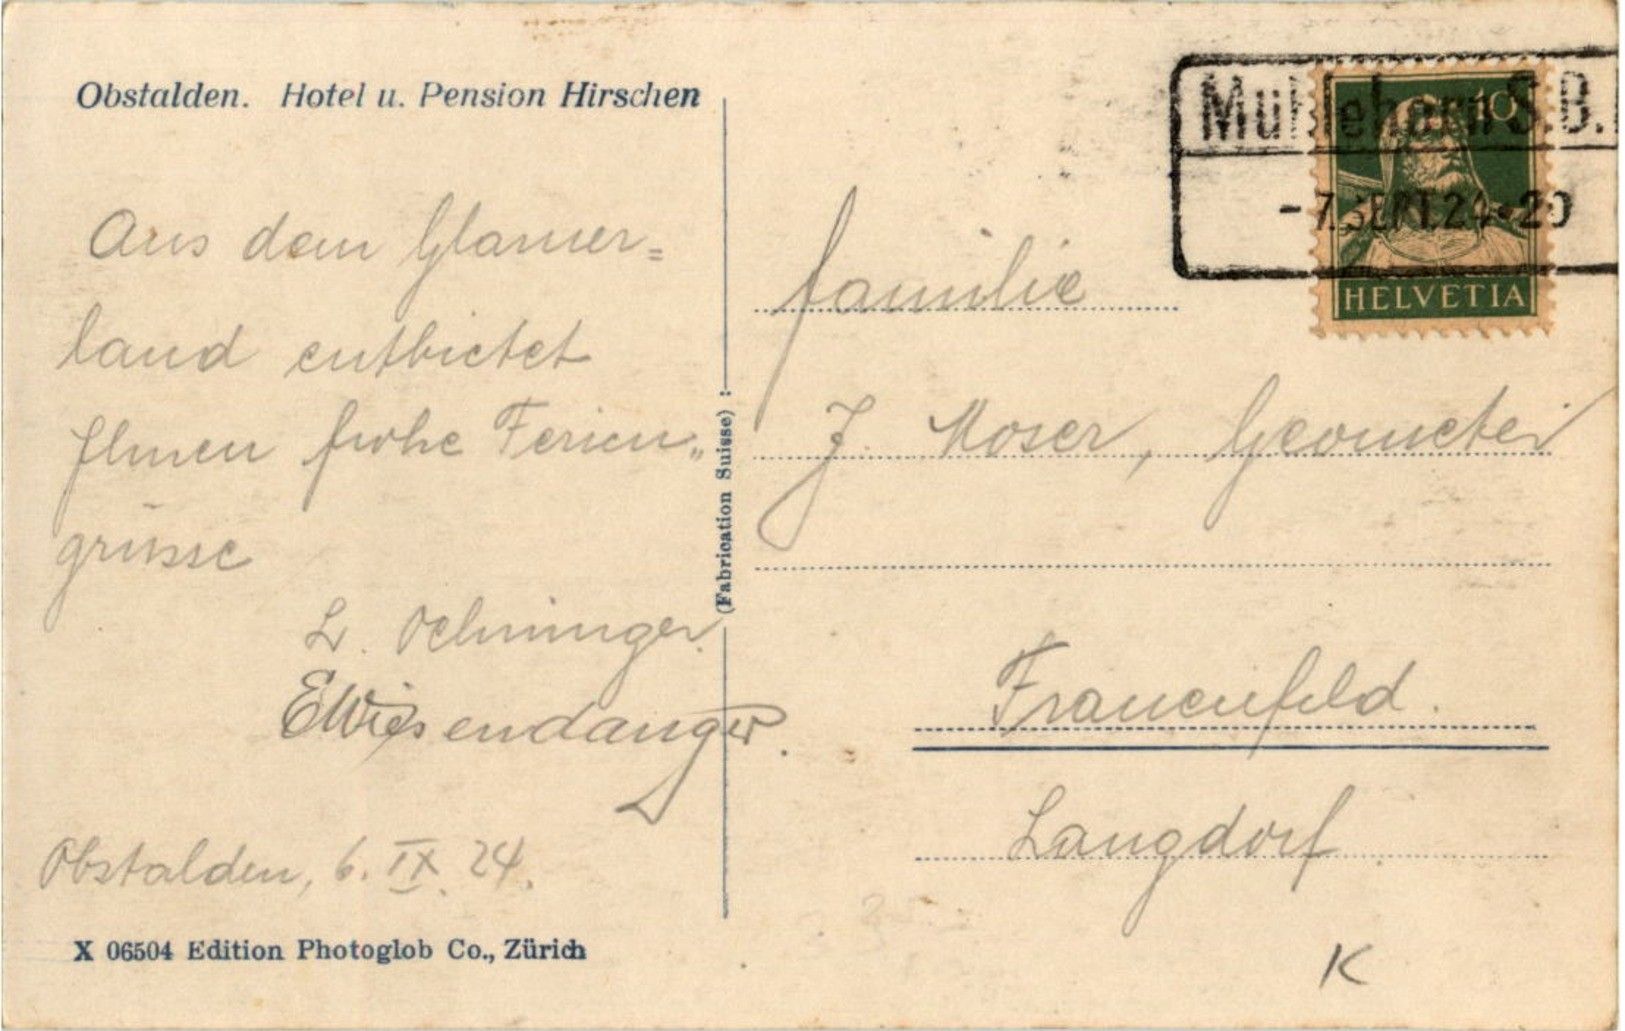 Obstalden. Hotel u. Pension Hirschen
Aus dem Glarner=
land entbietet
Ihnen frohe Ferien„
grüsse
L. Oehninger.
EWiesendanger.
Obstalden, 6. IX. 24.
X 06504 Edition Photoglob Co., Zürich
(Fabrication Suisse) :
Mühlehorn S.B.
-7.SEPT.24-20
10
HELVETIA
Familie
J. Moser, Geometer
Frauenfeld.
Langdorf.
K